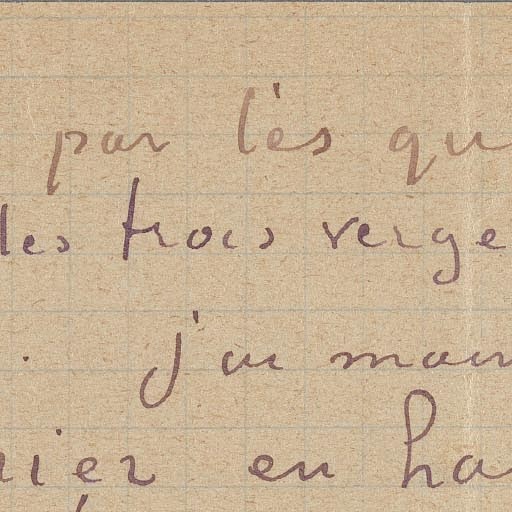 par lès qu
les trois verge
. j'ai main
nier en ha